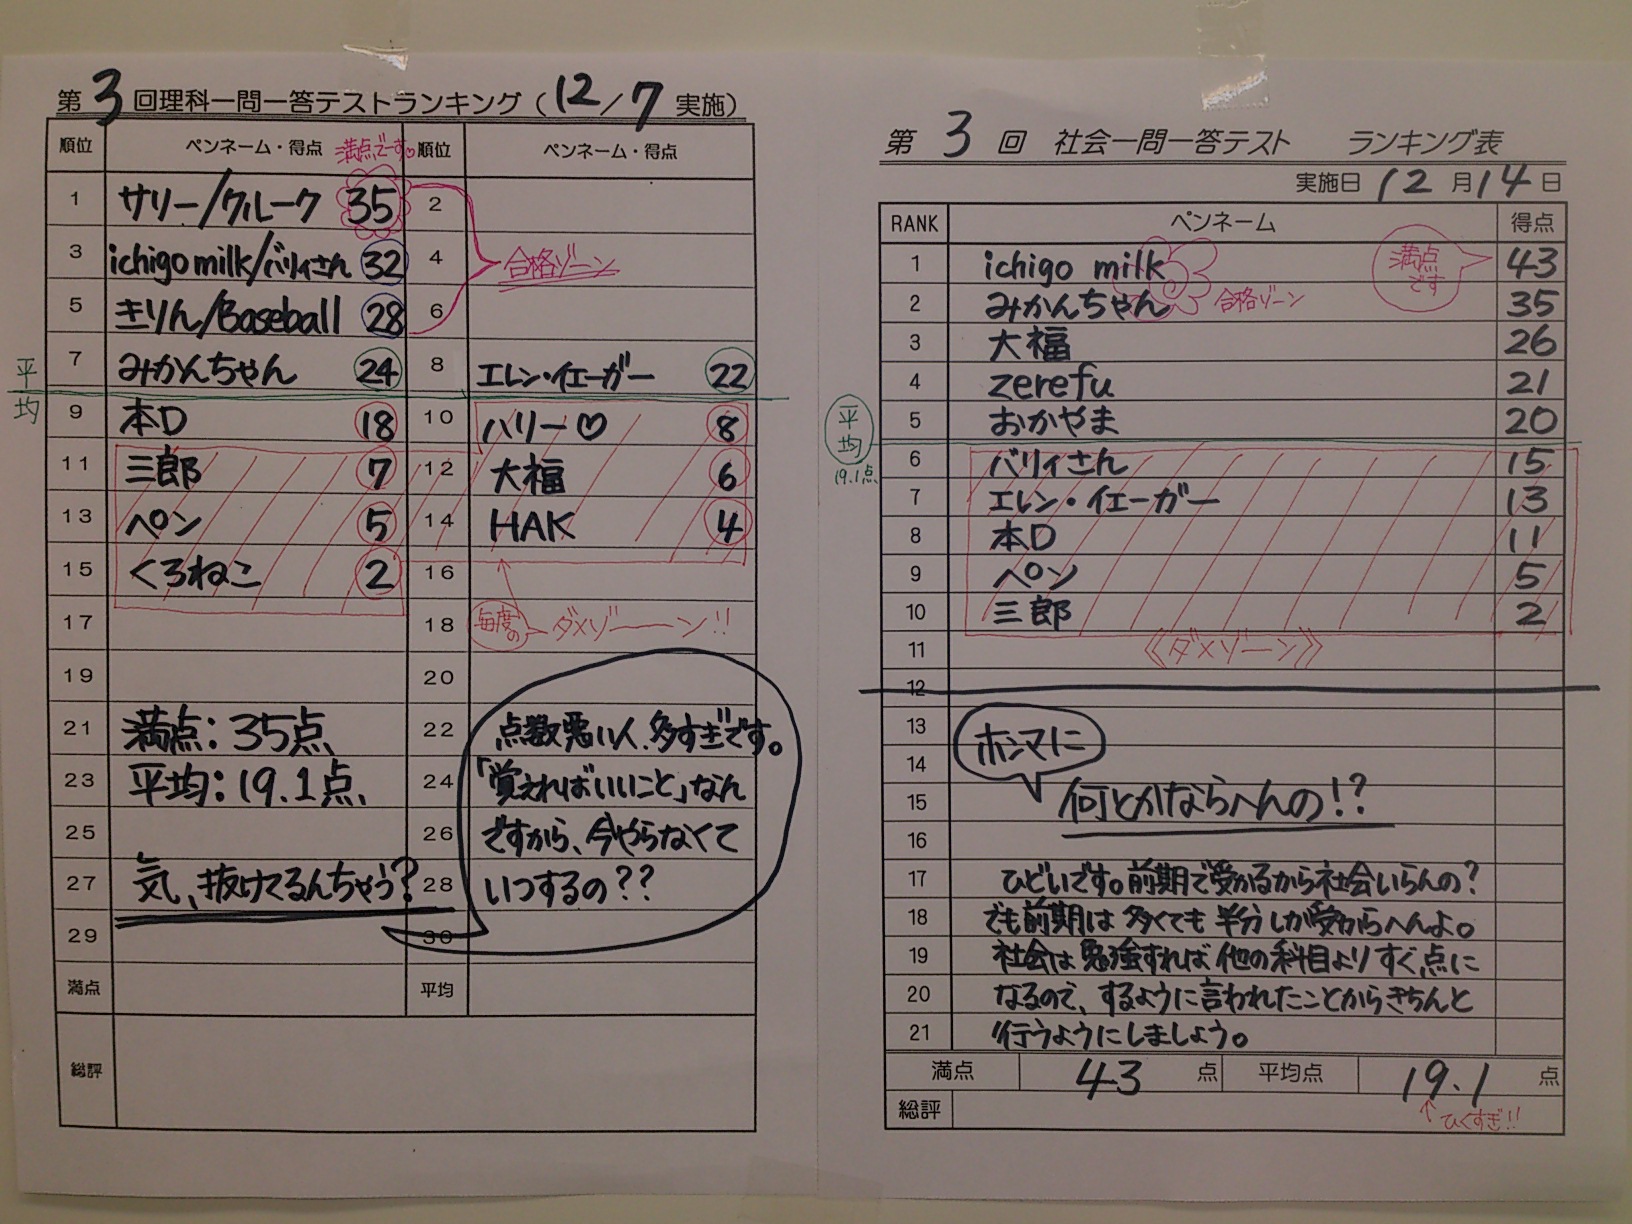 第3回理科一問一答テストランキング（12/7 実施）
順位 ペンネーム・得点 満点です。 順位 ペンネーム・得点
1 サリー/クルーク 35 2
3 ichigo milk/バリィさん 32 4 合格ゾーン
5 きりん/Baseball 28 6
7 みかんちゃん 24 8 エレン・イェーガー 22
平均
9 本D 18 10 ハリー♡ 8
11 三郎 7 12 大福 6
13 ペン 5 14 HAK 4
15 くろねこ 2 16
17 18 毎度の ダメゾーーン!!
19 20
21 満点：35点 22 点数悪い人、多すぎです。
23 平均：19.1点 24 「覚えればいいこと」なん
25 26 ですから、今やらなくて
27 気、抜けてるんちゃう？ 28 いつするの？？
29 30
満点 平均
総評
第 3 回 社会一問一答テスト ランキング表
実施日 12月14日
RANK ペンネーム 得点
1 ichigo milk 満点です 43
2 みかんちゃん 合格ゾーン 35
3 大福 26
4 zerefu 21
5 おかやま 20
平均 19.1点
6 バリィさん 15
7 エレン・イェーガー 13
8 本D 11
9 ペン 5
10 三郎 2
11 《ダメゾーン》
12
13 ホンマに
14
15 何とかならへんの！？
16
17 ひどいです。前期で受かるから社会いらんの？
18 でも前期は多くても半分しか受からへんよ。
19 社会は勉強すれば他の科目よりすぐ点に
20 なるので、するように言われたことからきちんと
21 行うようにしましょう。
満点 43 点 平均点 19.1 点
総評 ↑ひくすぎ!!